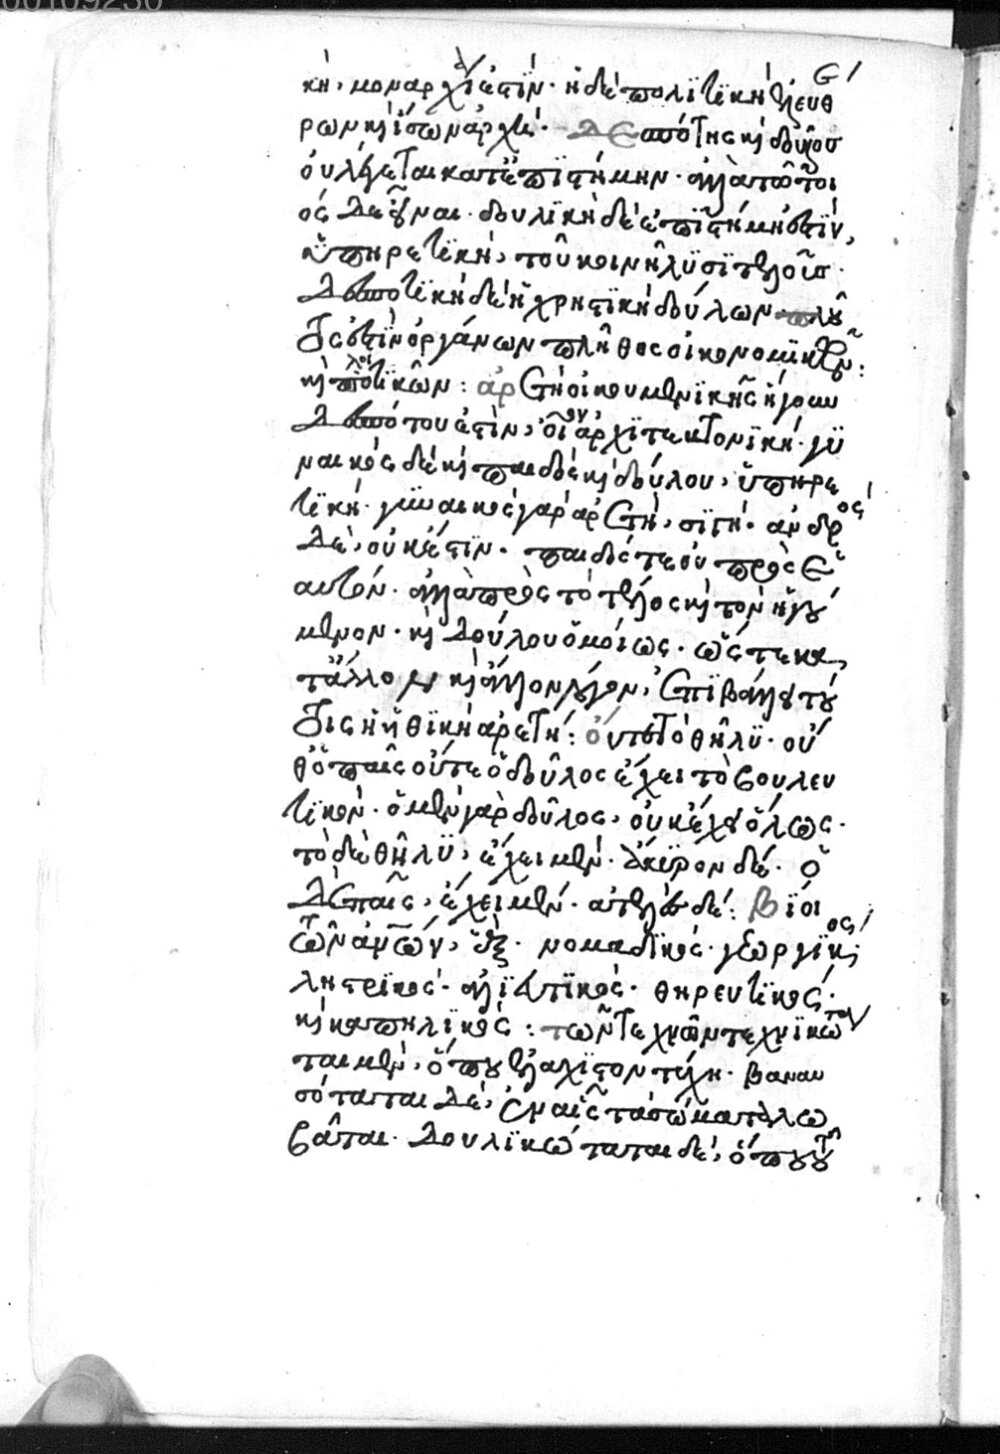 κὴ, μοναρχία ἐστίν· ἡ δὲ πολιτικὴ ἐλευθέ
ρων καὶ ἴσων ἀρχή· Δεσπότης καὶ δοῦλος
οὐ λέγεται κατ' ἐπιστήμην· ἀλλὰ τῶ τοι
όσδε εἶναι· δουλικὴ δὲ ἐπιστήμη ἐστὶν,
ὑπηρετικὴ, τοῦ κοινῆ λυσιτελοῦς·
Δεσποτικὴ δὲ ἡ χρηστικὴ δούλων· πλοῦ
τος ἐστὶν ὀργάνων πλῆθος οἰκονομικῶν:
καὶ πολιτικῶν: ἀρετὴ οἰκουμενικῆς ἤγουν
Δεσπότου ἐστὶν, οἷον ἀρχιτεκτονική· γυ
ναικὸς δὲ καὶ παιδὸς καὶ δούλου, ὑπηρε
τική· γυναικὸς γὰρ ἀρετὴ, σιγή· ἀνδρὸς
Δὲ, οὐκέτιν· παιδός τε οὐ πρὸς ἑ
αυτόν· ἀλλὰ πρὸς τὸ τέλος καὶ τὸν ἡγού
μενον· καὶ Δούλου ὁμοίως· ὥστε κα
τ' ἄλλον καὶ ἄλλον λόγον, ἐπιβάλλει τού
τοις ἡ ἠθικὴ ἀρετή: οὔτε τὸ θῆλυ· οὔ
θ' ὁ παῖς οὔτε ὁ δοῦλος ἔχει τὸ βουλευ
τικόν· ὁ μὲν γὰρ δοῦλος, οὐκ ἔχει ὅλως·
τὸ δὲ θῆλυ, ἔχει μέν· ἄκυρον δέ· ὁ
Δὲ παῖς, ἔχει μέν· ἀτελὲς δέ: βίοι
τῶν ἀνων, ἓξ· νομαδικός· γεωργικός·
ληστρικός· ἁλιευτικός· θηρευτικός·
καὶ καπηλικός: τῶν τεχνῶν τεχνικώτα
ται μὲν, ὅπου ἐλάχιστον τύχη· βαναυ
σόταται Δὲ, ἐν αἷς τὰ σώματα λω
βᾶται· Δουλικώταται δὲ, ὅπου τοῦ